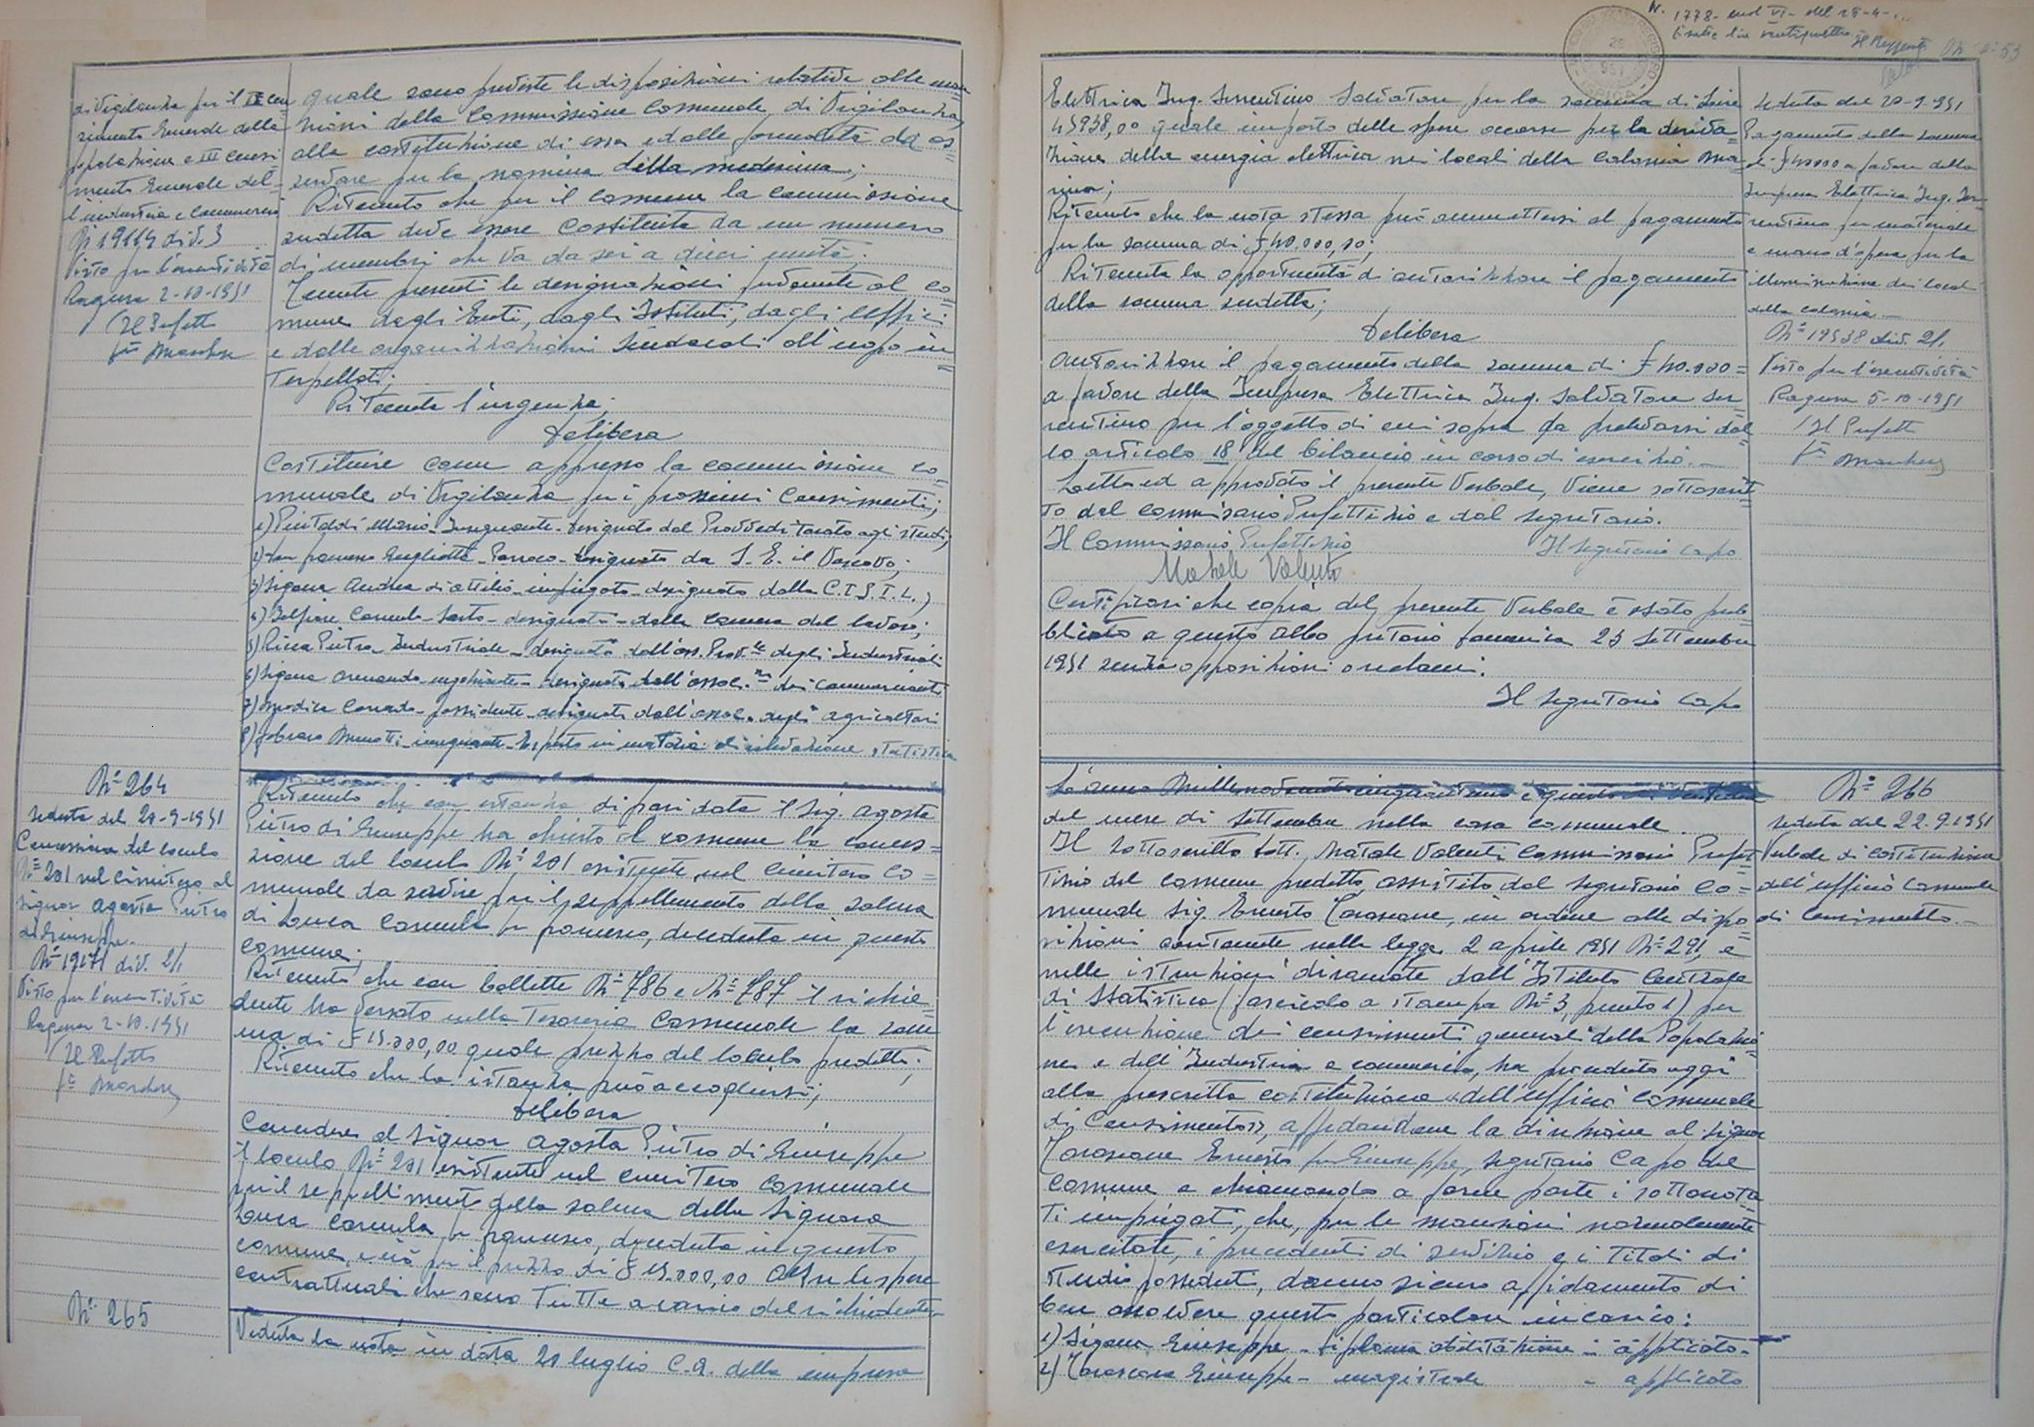 di Vigilanza per il IX cen
simento Generale della
popolazione e III censi
mento Generale del-
l'industria e commercio
Nº 19114 div. 3
Visto per l'esecutività
Ragusa 2-10-1951
Il Prefetto
quale sono previste le disposizioni relative alle man
sioni della Commissione Comunale di Vigilanza,
alla costituzione di essa e dalle formalità da os=
servare per la nomina della medesima;
Ritenuto che per il Comune la commissione
sudetta deve essere costituita da un numero
di membri che va da sei a dieci unità.
Tenute presenti le designazioni pervenute al co=
mune dagli Enti, dagli Istituti, dagli Uffici
e dalle organizzazioni Sindacali all'uopo in
terpellati;
Ritenuta l'urgenza;
Delibera
Costituire come appresso la commissione co
munale di Vigilanza per i prossimi Censimenti;
1) Mario - Insegnante - designato dal Provveditorato agli studi;
2) Parroco - designato da S. E. il Vescovo;
3) Sigona Andrea di Attilio - impiegato - designato dalla C.I.S.L.;
4) Carmelo - Sarto - designato - dalla Camera del lavoro;
5) Ricca Pietro - Industriale - designato dall'ass. Prov.le degli Industriali
6) Sigona Armando - negoziante - designato dall'assoc.ne dei Commercianti
7) Modica Corrado - possidente - designato dall'assoc. degli agricoltori
8) insegnante - Esperto in materia di rilevazione statistica
Nº 264
seduta del 20-9-1951
Concessione del loculo
Nº 201 nel Cimitero al
signor Agosta Pietro
di Giuseppe.
Nº 19171 div. 2/1
Visto per l'esecutività
Ragusa 2-10-1951
Il Prefetto
Ritenuto che con istanza di pari data il Sig. Agosta
Pietro di Giuseppe ha chiesto al comune la conces=
sione del loculo Nº 201 esistente nel cimitero co=
munale da servire per il seppellimento della salma
di Luca Carmela fu Francesco, deceduta in questo
comune;
Ritenuto che con bollette Nº 786 e Nº 787 il richie=
dente ha versato nella Tesoreria Comunale la som
ma di £ 15.000,00 quale prezzo del loculo predetto;
Ritenuto che la istanza può accogliersi;
Delibera
Concedere al signor Agosta Pietro di Giuseppe
il loculo Nº 201 esistente nel cimitero comunale
per il seppellimento della salma della Signora
Luca Carmela fu Francesco, deceduta in questo
comune, e ciò per il prezzo di £ 15.000,00 oltre le spese
contrattuali che sono tutte a carico del richiedente.
Nº 265
Veduta la nota in data 20 luglio c.a. della impresa
Elettrica Ing. Sorrentino Salvatore, per la somma di Lire
45938,00 quale importo delle spese occorse per la deriva
zione della energia elettrica nei locali della Colonia Ma
rina;
Ritenuto che la nota stessa può ammettersi al pagamento
per la somma di £ 40.000,00;
Ritenuta la opportunità di autorizzare il pagamento
della somma sudetta;
Delibera
Autorizzare il pagamento della somma di £ 40.000=
a favore della Impresa Elettrica Ing. Salvatore Sor
rentino per l'oggetto di cui sopra da prelevarsi dal=
lo articolo 18 del bilancio in corso di esercizio.
Letto ed approvato il presente Verbale, viene sottoscrit
to dal commissario Prefettizio e dal segretario.
Il Commissario Prefettizio Il segretario capo
Natale Valenti
Certificasi che copia del presente Verbale è stato pub
blicato a questo albo pretorio domenica 23 Settembre
1951 senza opposizioni o reclami.
Il segretario Capo
seduta del 20-9-1951
Pagamento della somma
di £ 40000 a favore della
Impresa Elettrica Ing. Sor-
rentino per materiale
e mano d'opera per la
illuminazione dei locali
della colonia.
Nº 19538 div. 2/1
Visto per l'esecutività
Ragusa 5-10-1951
Il Prefetto
L'anno Millenovecentocinquantuno e questo dì Ventidue
del mese di Settembre nella casa comunale.
Il sottoscritto Dott. Natale Valenti Commissario Prefet
tizio del comune predetto, assistito dal segretario co=
munale Sig. Ernesto Tarascone, in ordine alle dispo=
sizioni contenute nella legge 2 aprile 1951 Nº 291, e
nelle istruzioni diramate dall'Istituto Centrale
di Statistica (fascicolo a stampa Nº 3, punto 1) per
l'esecuzione dei censimenti generali della Popolazio=
ne e dell'Industria e commercio, ha proceduto oggi
alla prescritta costituzione «dell'ufficio comunale
di Censimento», affidandone la direzione al signor
Tarascone Ernesto fu Giuseppe, segretario Capo del
Comune e chiamando a farne parte i sottonota
ti impiegati, che, per le mansioni normalmente
esercitate, i precedenti di servizio e i titoli di
studio posseduti, danno sicuro affidamento di
ben assolvere questo particolare incarico:
1) Sigona Giuseppe - Diploma abilitazione - applicato -
2) Tarascone Giuseppe - magistrale - applicato
Nº 266
seduta del 22.9.1951
Verbale di costituzione
dell'ufficio Comunale
di Censimento.-